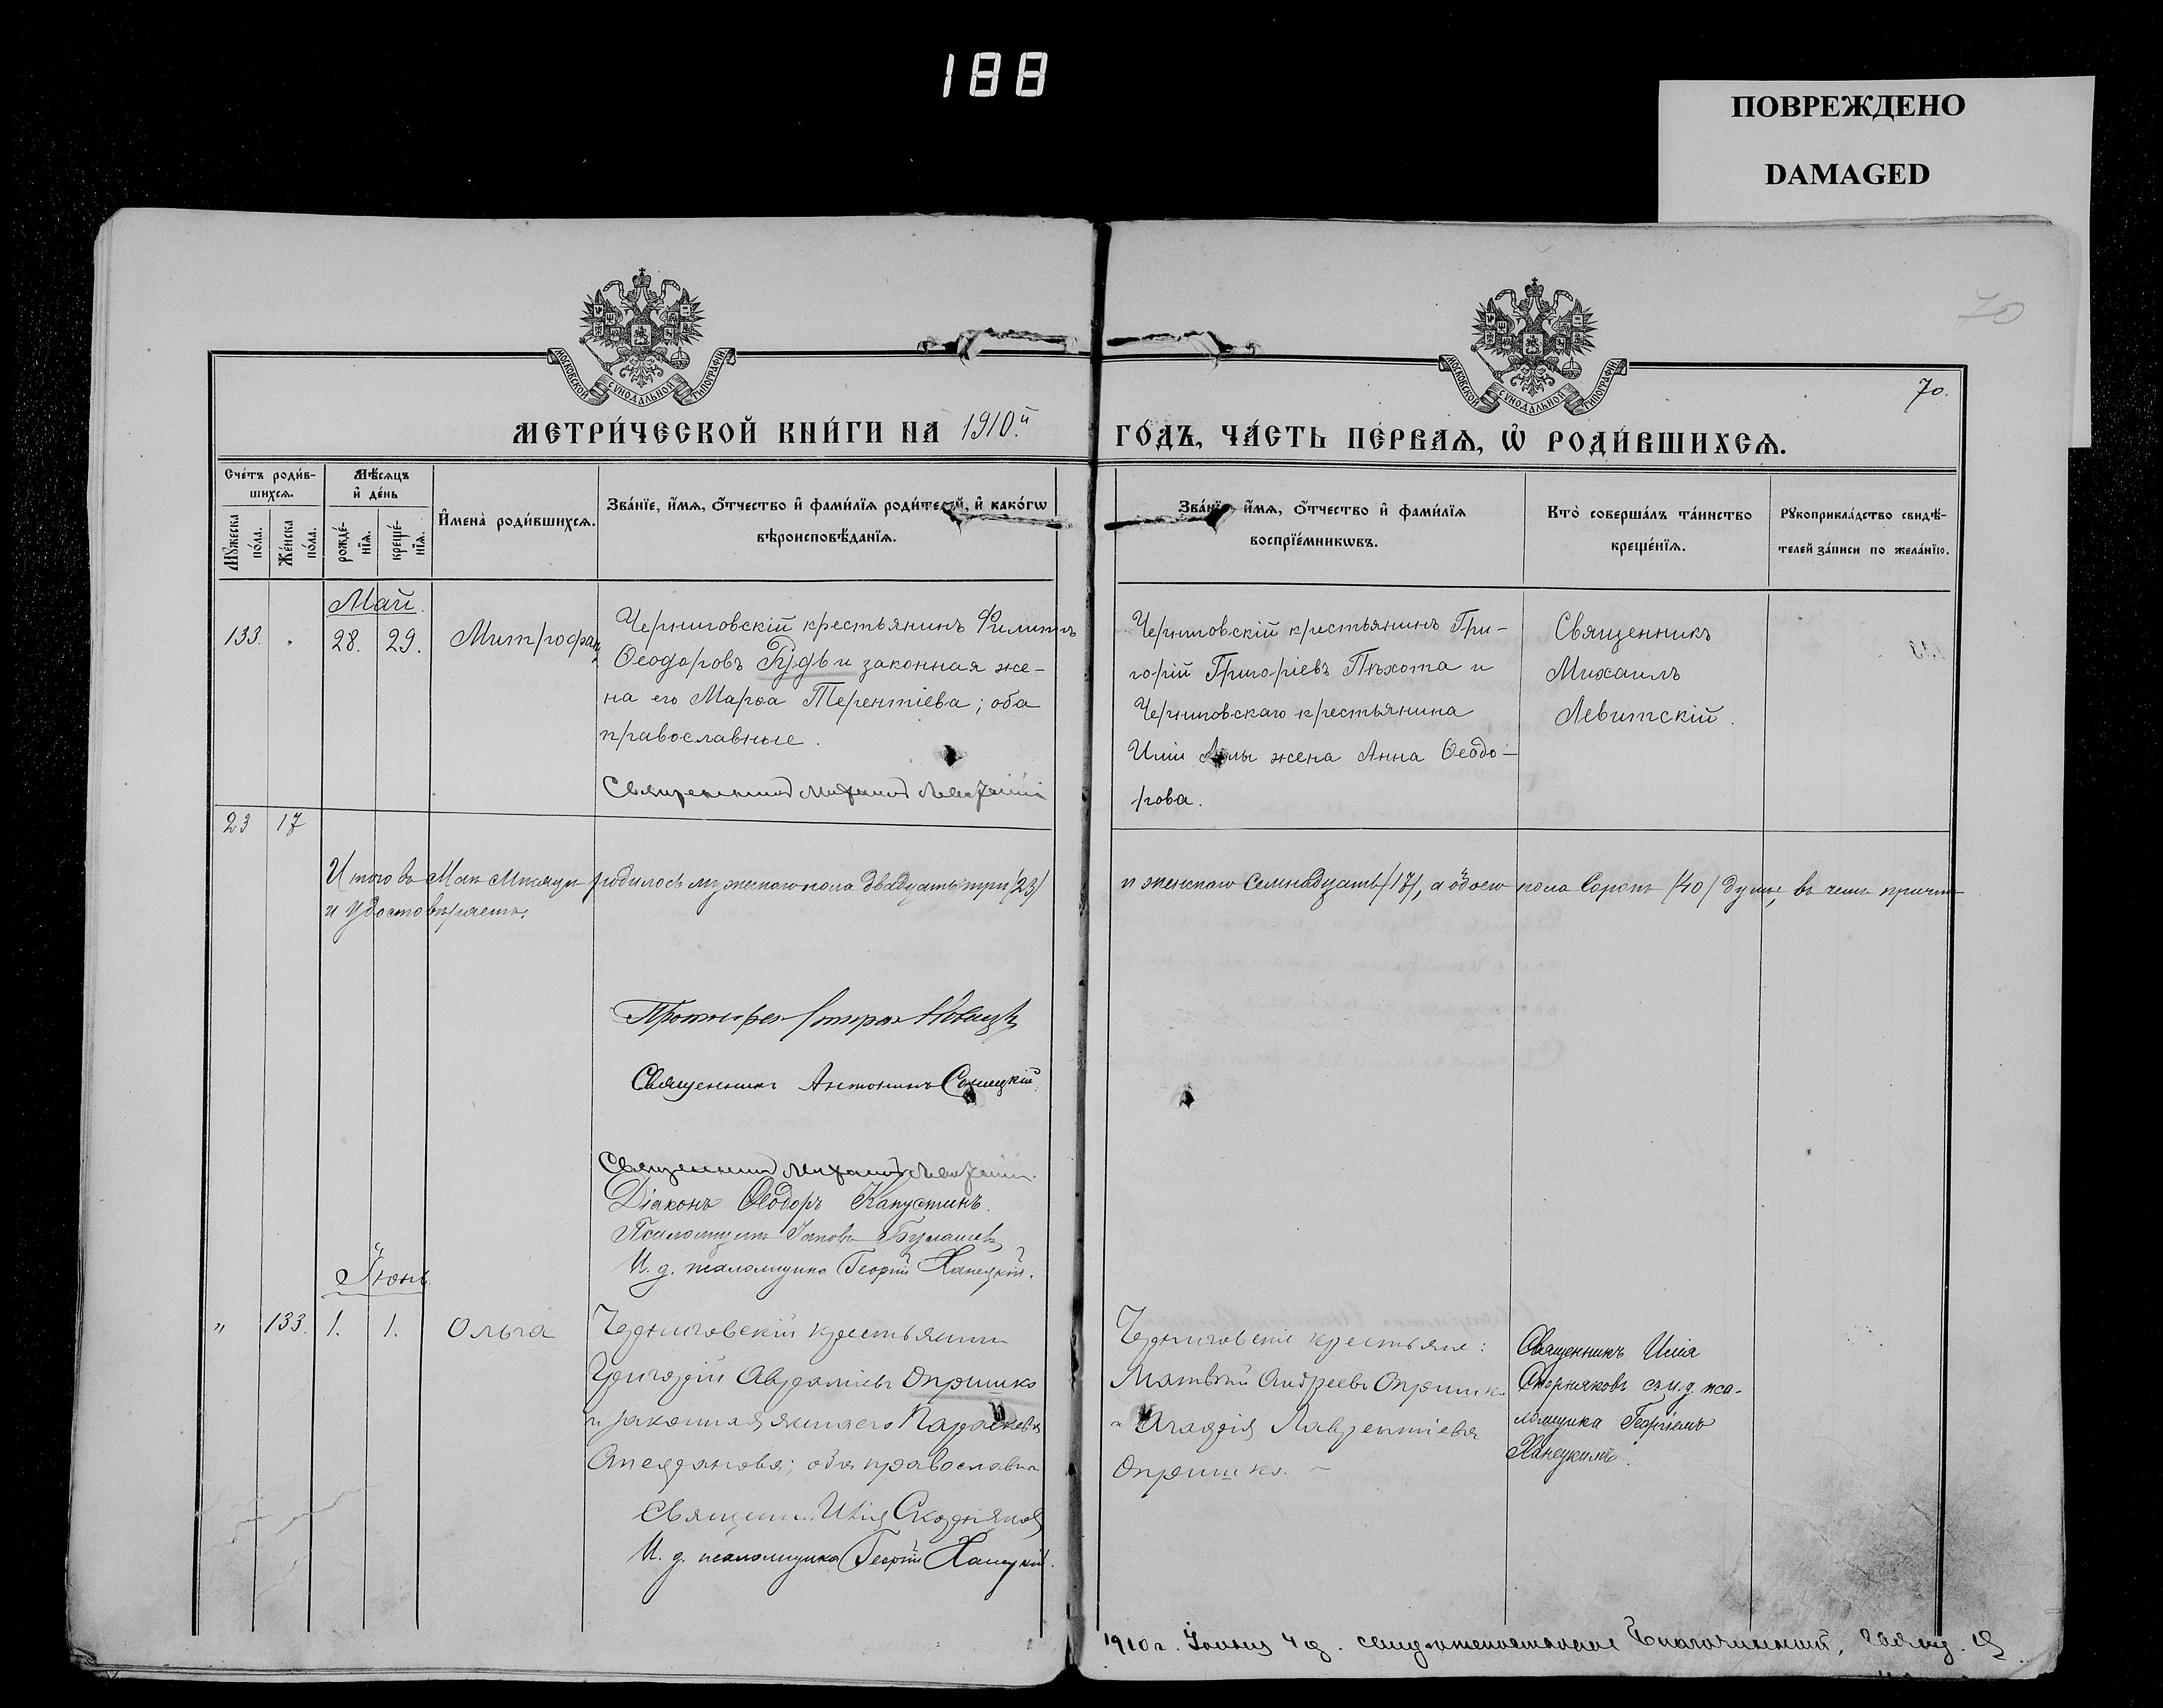 188
ПОВРЕЖДЕНО
DAMAGED
70
70.
МОСКОВСКОЙ СѴНОДАЛЬНОЙ ТИПОГРАФІИ
МОСКОВСКОЙ СѴНОДАЛЬНОЙ ТИПОГРАФІИ
МЕТРИ́ЧЕСКОЙ КНИ́ГИ НА 1910.й
ГО́ДЪ, ЧА́СТЬ ПЕ́РВАѦ, Ѽ РОДИ́ВШИХСѦ.
Счетъ роди́в-
шихсѧ.
Мѣ́сѧцъ
и҆ де́нь
Мꙋ́жеска по́ла.
Же́нска по́ла.
рожде́-
нїѧ.
креще́-
нїѧ.
И҆мена̀ роди́вшихсѧ.
Зва́нїе, и҆́мѧ, ѻ҆́тчество и҆ фами́лїѧ роди́телей, и҆ како́гѡ
вѣроисповѣ́данїѧ.
Зва́нїе, и҆́мѧ, ѻ҆́тчество и҆ фами́лїѧ
воспрїе́мникѡвъ.
Кто̀ соверша́лъ та́инство
креще́нїѧ.
Рꙋкоприкла́дство свидѣ́-
телей за́писи по жела́нїю.
Май.
133. " 28. 29. Митрофанъ
Черниговскій крестьянинъ Филиппъ
Ѳеодоровъ Рудь и законная же-
на его Марѳа Терентіева; оба
православные.
Священникъ Михаилъ Левитскій
Черниговскій крестьянинъ Гри-
горій Григоріевъ Пѣхота и
Черниговскаго крестьянина
Иліи жена Анна Ѳеодо-
рова.
Священникъ
Михаилъ
Левитскій.
23 17
Итого въ Маѣ мѣсяцѣ родилось мужескаго пола двадцать три /23/
и женскаго семнадцать /17/, а обоего пола сорокъ /40/ душъ, въ чемъ причтъ
и удостовѣряетъ.
Протоіерей
Священникъ Антонинъ
Священникъ Михаилъ Левитскій.
Діаконъ Ѳеодоръ Капустинъ.
Псаломщикъ
И. д. псаломщика Георгій Ханецкій.
Іюнь
" 133. 1. 1. Ольга
Черниговскій крестьянинъ
Григорій Авраміевъ Опришко
и законная жена его Параскева
оба православн
Священ. Илія Скорняковъ
И. д. псаломщика Георгій Ханецкій.
Черниговскіе крестьяне:
Матвѣй Андреевъ Опришко
и Лаврентіева
Опришко. —
Священникъ Илія
Скорняковъ съ и. д. пса-
ломщика Георгіемъ
Ханецкимъ.
1910 г. Іюня 4 д.